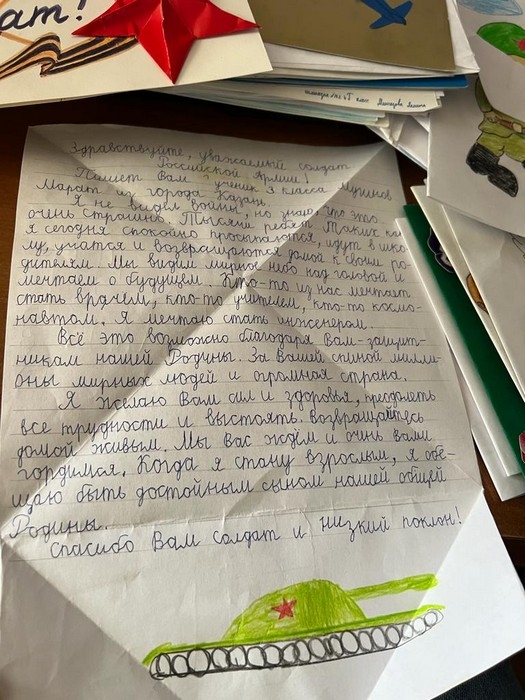 ат!
Здравствуйте, уважаемый солдат
Российской Армии!
Пишет Вам ученик 3 класса Муминов
Марат из города Казань.
Я не видел войны, но знаю, что это
очень страшно. Тысячи ребят таких как
я сегодня спокойно просыпаются, идут в шко-
лу, учатся и возвращаются домой к своим ро-
дителям. Мы видим мирное небо над головой и
мечтаем о будущем. Кто-то из нас мечтает
стать врачем, кто-то учителем, кто-то космо-
навтом. Я мечтаю стать инженером.
Всё это возможно благодаря Вам-защит-
никам нашей Родины. За Вашей спиной милли-
оны мирных людей и огромная страна.
Я желаю Вам сил и здоровья, преодолеть
все трудности и выстоять. Возвращайтесь
домой живым. Мы Вас ждём и очень вами
гордимся. Когда я стану взрослым, я обе-
щаю быть достойным сыном нашей общей
Родины.
Спасибо Вам солдат и низкий поклон!